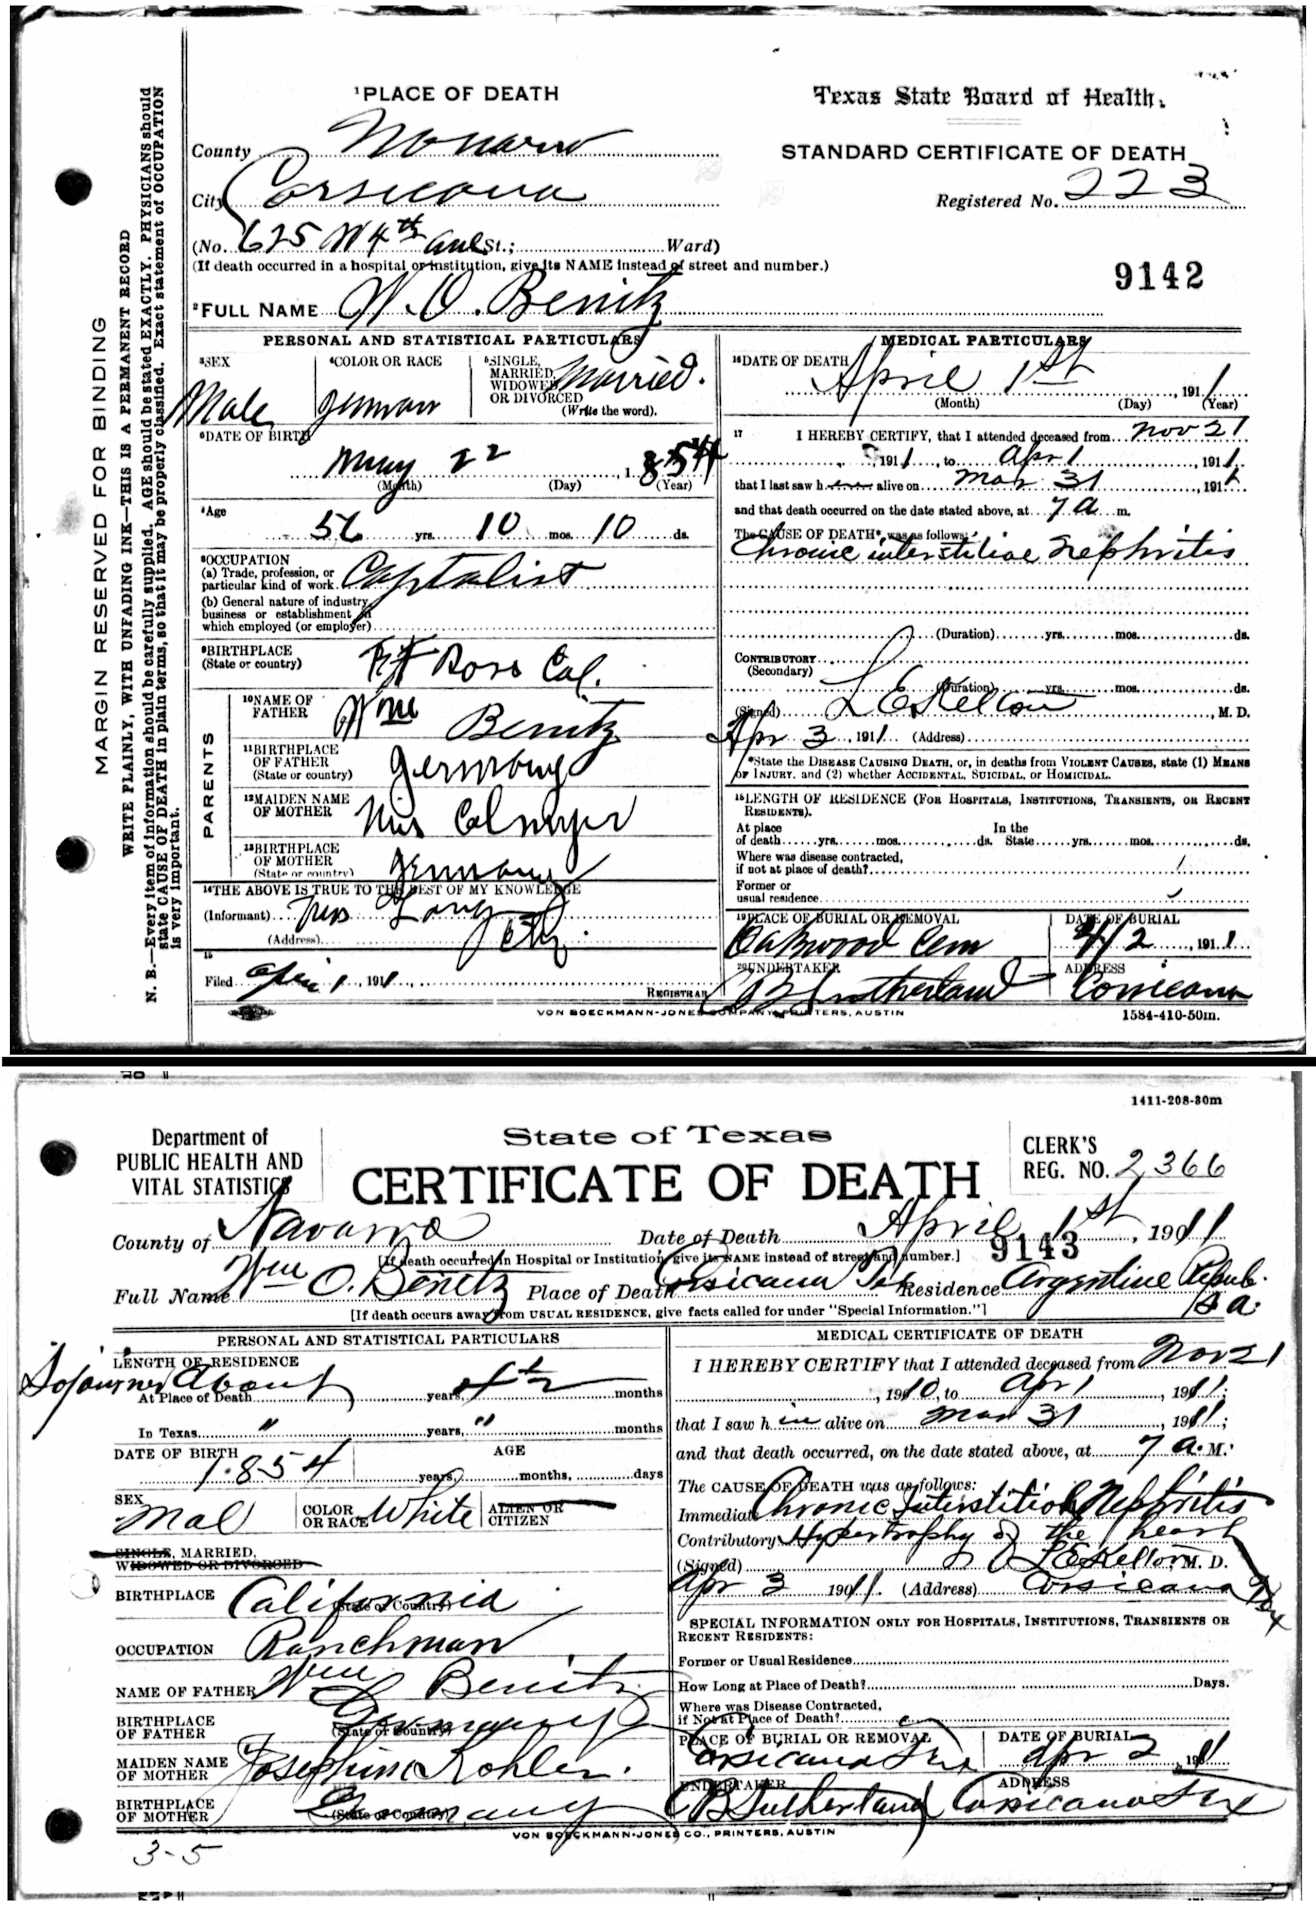 ¹PLACE OF DEATH
Texas State Board of Health.
County Navarro
STANDARD CERTIFICATE OF DEATH
City Corsicana
Registered No. 223
(No. 625 W 4th ave St.; Ward)
(If death occurred in a hospital or institution, give its NAME instead of street and number.)
9142
²FULL NAME W. O. Benitz
MARGIN RESERVED FOR BINDING
WRITE PLAINLY, WITH UNFADING INK—THIS IS A PERMANENT RECORD
N. B.—Every item of information should be carefully supplied. AGE should be stated EXACTLY. PHYSICIANS should
state CAUSE OF DEATH in plain terms, so that it may be properly classified. Exact statement of OCCUPATION
is very important.
PERSONAL AND STATISTICAL PARTICULARS
³SEX
Male
⁴COLOR OR RACE
German
⁵SINGLE,
MARRIED,
WIDOWED
OR DIVORCED
Married.
(Write the word).
⁶DATE OF BIRTH
May 22 1854
(Month) (Day) (Year)
⁷Age
56 yrs. 10 mos. 10 ds.
⁸OCCUPATION
(a) Trade, profession, or
particular kind of work Captalist
(b) General nature of industry,
business or establishment in
which employed (or employer)
⁹BIRTHPLACE
(State or country) Ft Ross Cal.
PARENTS
¹⁰NAME OF
FATHER Wm Benitz
¹¹BIRTHPLACE
OF FATHER
(State or country) Germany
¹²MAIDEN NAME
OF MOTHER Miss Colmyer
¹³BIRTHPLACE
OF MOTHER
(State or country) Germany
¹⁴THE ABOVE IS TRUE TO THE BEST OF MY KNOWLEDGE
(Informant) Mrs Long
(Address) City.
15
Filed April 1, 1911
REGISTRAR
MEDICAL PARTICULARS
¹⁶DATE OF DEATH
April 1st, 1911
(Month) (Day) (Year)
17 I HEREBY CERTIFY, that I attended deceased from Nov 21
, 1911, to Apr 1, 1911.
that I last saw h alive on Mar 31, 191
and that death occurred on the date stated above, at 7 a m.
The CAUSE OF DEATH* was as follows:
Chronic interstitial Nephritis
(Duration) yrs. mos. ds.
CONTRIBUTORY
(Secondary)
(Duration) yrs. mos. ds.
(Signed) L E Kelton, M. D.
Apr 3, 1911 (Address)
*State the DISEASE CAUSING DEATH, or, in deaths from VIOLENT CAUSES, state (1) MEANS
OF INJURY. and (2) whether ACCIDENTAL, SUICIDAL, OR HOMICIDAL.
¹⁸LENGTH OF RESIDENCE (FOR HOSPITALS, INSTITUTIONS, TRANSIENTS, OR RECENT
RESIDENTS).
At place In the
of death yrs. mos. ds. State yrs. mos. ds.
Where was disease contracted,
if not at place of death?
Former or
usual residence
¹⁹PLACE OF BURIAL OR REMOVAL
Oakwood Cem
DATE OF BURIAL
4/2, 1911
²⁰UNDERTAKER
B Sutherland
ADDRESS
Corsicana
VON BOECKMANN-JONES COMPANY, PRINTERS, AUSTIN
1584-410-50m.
1411-208-30m
Department of
PUBLIC HEALTH AND
VITAL STATISTICS
State of Texas
CERTIFICATE OF DEATH
CLERK'S
REG. NO. 2366
County of Navarro Date of Death April 1st, 1911
[If death occurred in Hospital or Institution, give its NAME instead of street and number.]
9143
Full Name Wm O. Benitz Place of Death Corsicana Tex Residence Argentine Repub. S a.
[If death occurs away from USUAL RESIDENCE, give facts called for under "Special Information."]
PERSONAL AND STATISTICAL PARTICULARS
LENGTH OF RESIDENCE
Sojourner About
At Place of Death years, 4½ months
In Texas " years, " months
DATE OF BIRTH
1854
AGE
years, months, days
SEX
Mal
COLOR
OR RACE White
ALIEN OR
CITIZEN
SINGLE, MARRIED,
WIDOWED OR DIVORCED
BIRTHPLACE California
(State or Country)
OCCUPATION Ranchman
NAME OF FATHER Wm Benitz
BIRTHPLACE
OF FATHER Germany
(State or Country)
MAIDEN NAME
OF MOTHER Josephine Kohler.
BIRTHPLACE
OF MOTHER Germany
(State or Country)
3-5
MEDICAL CERTIFICATE OF DEATH
I HEREBY CERTIFY that I attended deceased from Nov 21
, 1910, to Apr 1, 1911;
that I saw h im alive on Mar 31, 1911;
and that death occurred, on the date stated above, at 7 a. M.
The CAUSE OF DEATH was as follows:
Immediate Chronic Interstitial Nephritis
Contributory Hypertrophy of the heart
(Signed) L E Kelton, M. D.
Apr 3 1911. (Address) Corsicana Tex
SPECIAL INFORMATION ONLY FOR HOSPITALS, INSTITUTIONS, TRANSIENTS OR
RECENT RESIDENTS:
Former or Usual Residence
How Long at Place of Death? Days.
Where was Disease Contracted,
if Not at Place of Death?
PLACE OF BURIAL OR REMOVAL
Corsicana Tex
DATE OF BURIAL
Apr 2, 1911
UNDERTAKER
B Sutherland
ADDRESS
Corsicana Tex
VON BOECKMANN-JONES CO., PRINTERS, AUSTIN